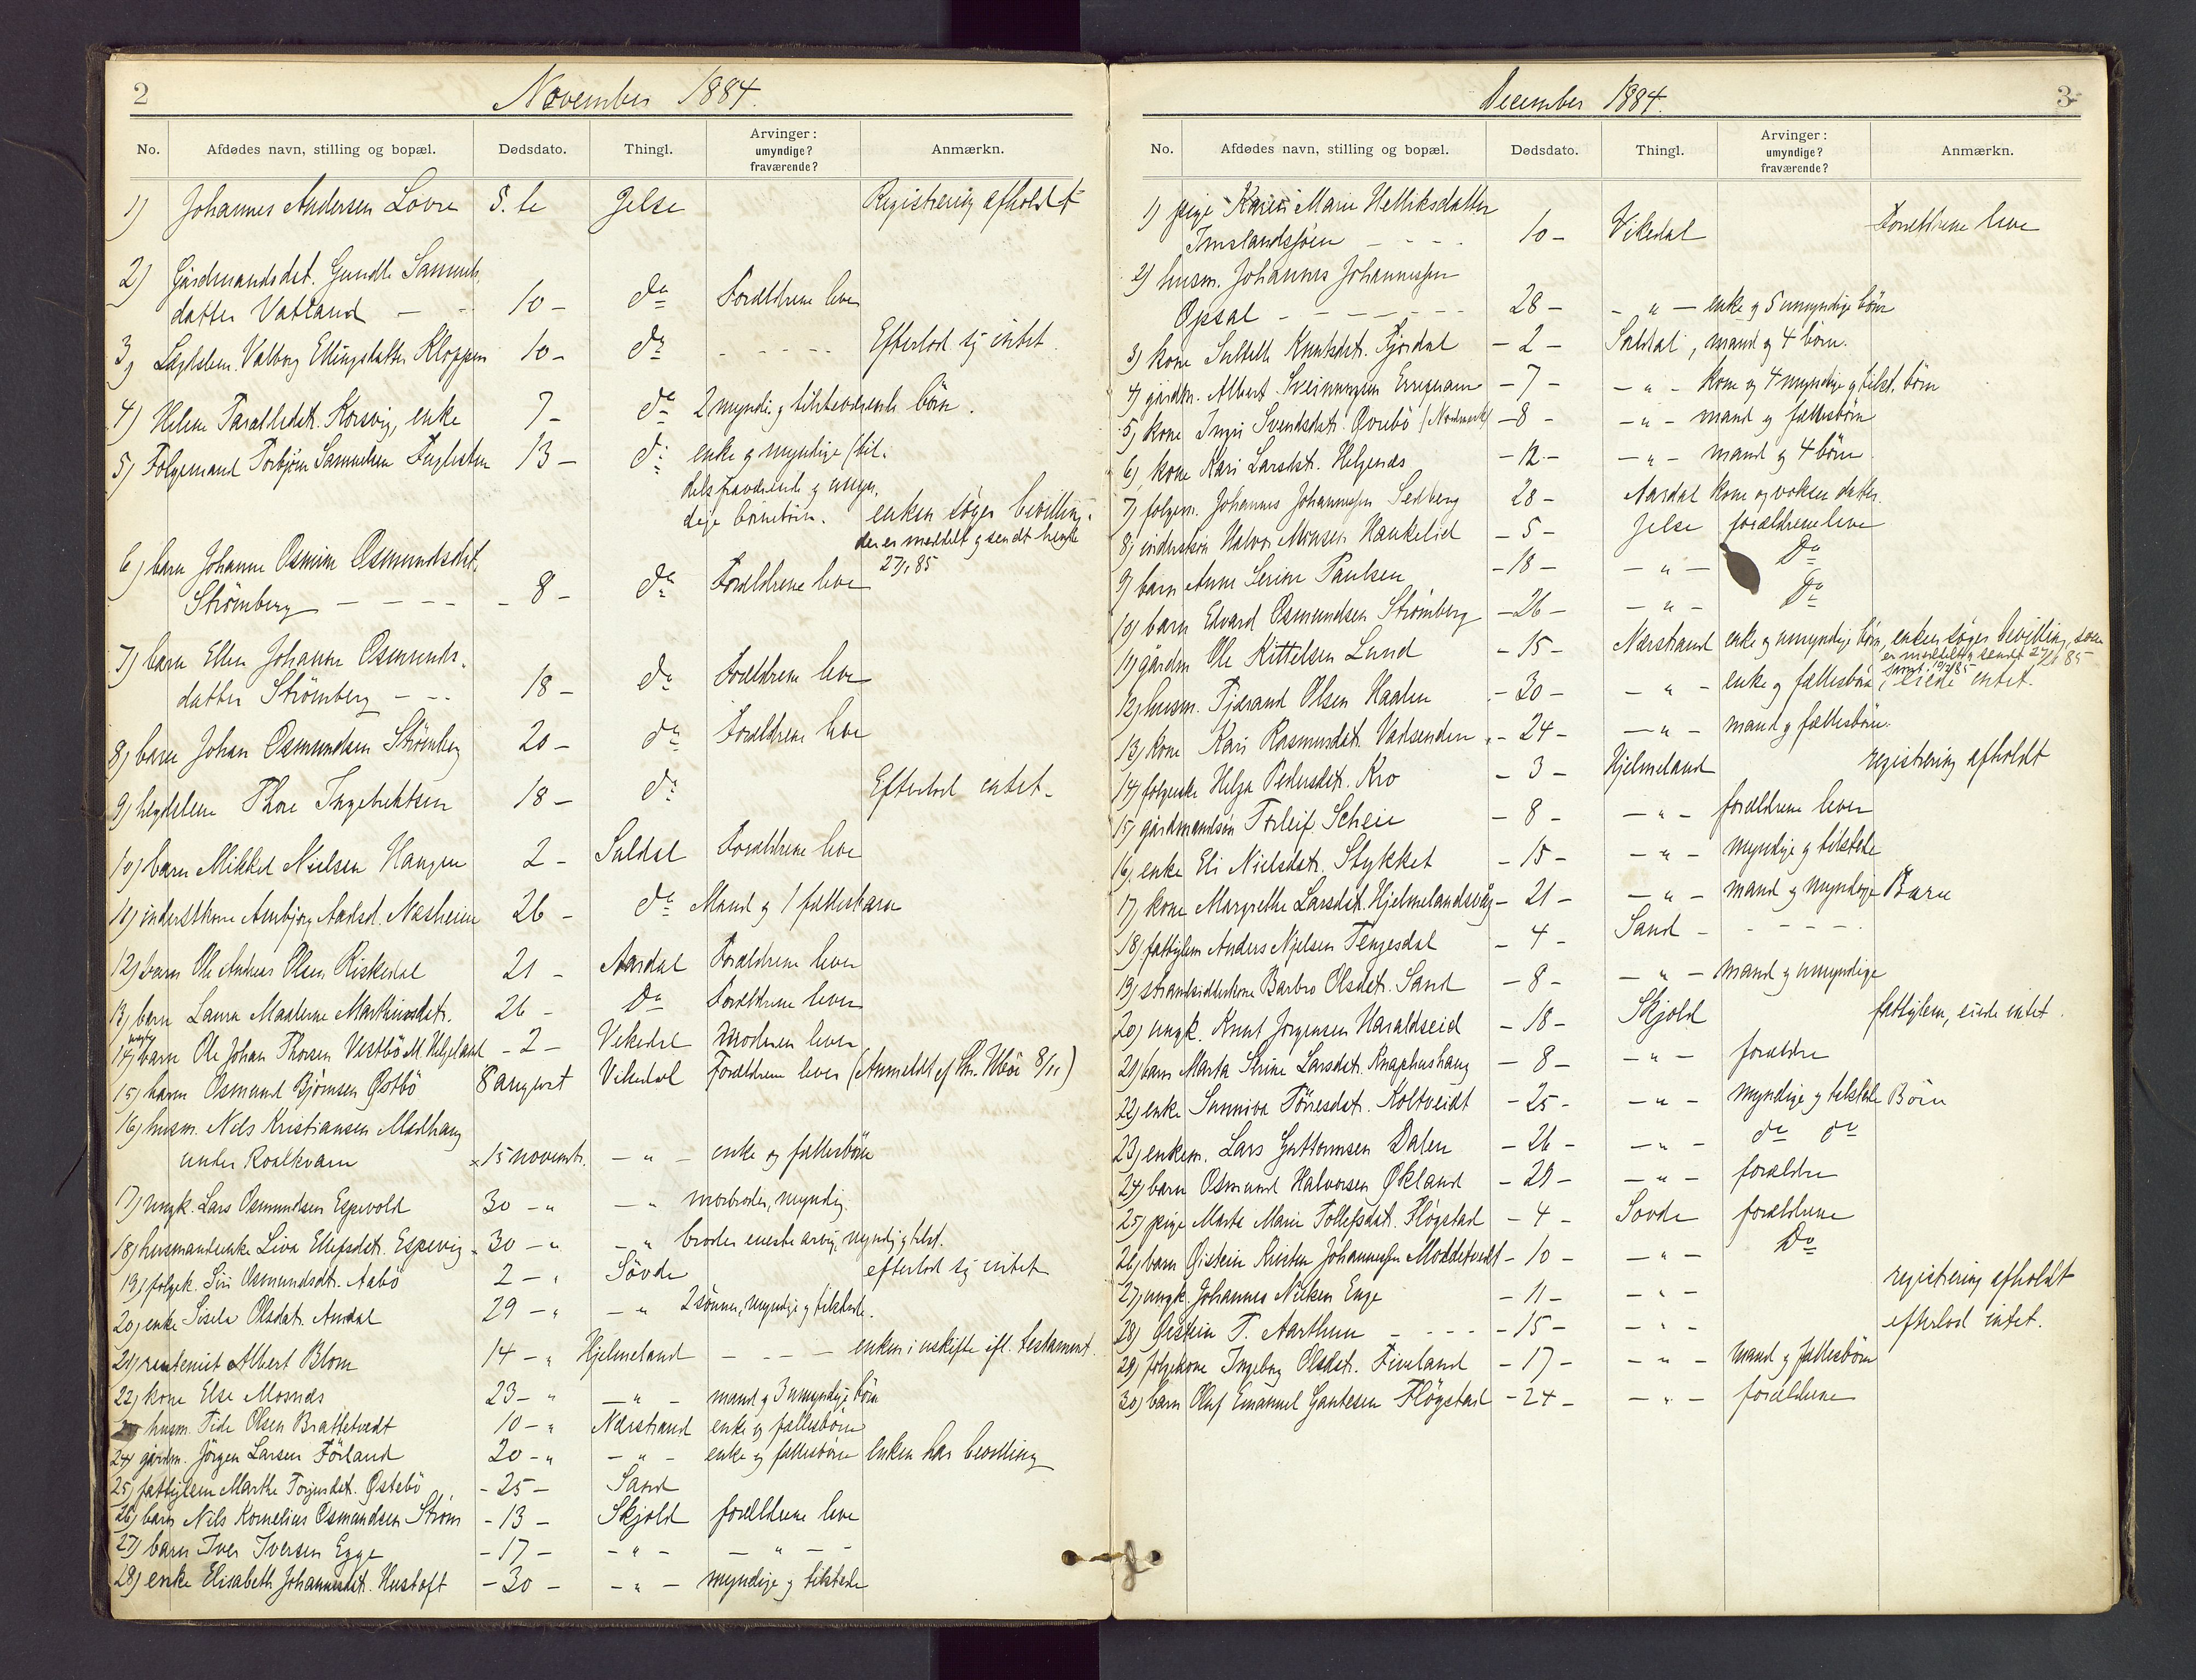 2
November 1884.
No. Afdødes navn, stilling og bopæl. Dødsdato. Thingl. Arvinger: umyndige? fraværende? Anmærkn.
1) Johannes Andersen Lovre 5. te Jelse Registrering afholdt
2) Gårdmandsdat. Gundla Samuels-
datter Vatland — 10 — do Forældrene lever
3) Lægdslem. Valborg Ellingsdatter Kloppen 10 — do - - - - - Efterlod sig intet.
4) Helene Taralldsdtr. Korsvig, enke 7 — do 2 myndige og tilstedeværende børn.
5) Folgemand Torbjørn Samuelsen Fuglesten 13 — do enke og myndige (til-
dels fraværende og umyn-
dige børnebørn. enken søger bevilling.
der er meddelt og sendt hende
27/1 85
6) barn Johanne Osmine Osmundsdat.
Strømberg — — — — 8 — do Forældrene leve
7) barn Ellen Johanne Osmunds-
datter Strömberg — - - 18 — do Forældrene leve
8) barn Johan Osmundsen Strömberg 20 — do Forældrene leve
9) legdslem Thore Ingebrektsen 18 — do Efterlod intet.
10) barn Mikkel Nielsen Haugen 2 — Suldal Forældrene leve
11) inderstkone Anbjørg Aadsd. Næsheim 26 — do Mand og 1 fællesbarn
12) barn Ole Andreas Olsen Riskedal 21 — Aardal Forældrene lever
13) barn Laura Maalene Marthinsdtr. 26 — Do Forældrene lever
14) uægte barn Ole Johan Thorsen Vestbö M. Helgeland — 2 — Vikedal Moderen lever
15) barn Osmund Bjørnsen Østbö 8 august Vikedal Forældrene lever (Anmeldt af Thr. Wböe 8/11)
16) husm. Nils Kristiansen Mælhaug
under Roalkvam × 15 novembr. — " — enke og fællesbörn
17) ungk. Lars Osmundsen Espevold 30 — " — " morbroder, myndig.
18) husmandsenke Liva Ellefsdtr. Espevig 30 — " — " broder eneste arving, myndig og tilst.
19) folgek. Siri Osmundsdt. Aabö 2 — " Søvde efterlod sig intet
20) enke Sisela Olsdatr. Amdal 29 — " — " 2 sønner, myndige og tilstede.
21) rentenist Albert Blom 14 — " Hjelmeland — — — enken i uskifte ifl. testament.
22) kone Else Mosnæs 23 — " — " — mand og 3 umyndige børn
husm. Tide Olsen Brattetvedt 10 — " Nærstrand enke og fællesborn
24) gårdm. Jörgen Larsen Förland 20 — " — " — enke og fællesbörn enken har bevilling
25) fattiglem Marthe Torjersdtr. Østebö — 25 — Sand
26) barn Nils Kornelius Osmundsen Strøm — 13 — Skjold forældrene leve
27) barn Iver Iversen Egge — 17 — — " — — " — —
28) enke Elisabeth Johannesdtr. Hustoft — 30 — — " — myndige og tilstede
3
December 1884.
No. Afdødes navn, stilling og bopæl. Dødsdato. Thingl. Arvinger: umyndige? fraværende? Anmærkn.
1) pige Karen Marie Helliksdatter
Imslandsjöen — - - - 10 — Vikedal Forældrene leve
2) husm. Johannes Johannessen
Opsal - - - - - - - 28 — - " — enke og 5 umyndige börn
3) kone Siselle Knutsdtr. Fjordal — 2 — Suldal, mand og 4 börn.
4) gårdm. Albert Sveinungsen — 7 — — " — kone og 4 myndige og tilst. börn
5) kone Ingri Svendsdtr. Øvrebö (Nordmork) — 8 — — " — mand og fællesbörn
6) kone Kari Larsdtr. Helgenæs — 12 — — " — mand og 4 börn.
7) folgem. Johannes Johannessen Sedberg 28 — Aardal kone og voksen datter.
8) inderstsön Halvor Monsen Haukelid — 5 — Jelse forældrene leve
9) barn Anne Serine Paulsen — 18 — — " — Do
10) barn Edvard Osmundsen Strömberg — 26 — — " — Do
11) gårdm Ole Kittelsen Lund — 15 — Nærstrand enke og umyndige börn, enken søger bevilling, som
er meddelt og sendt 27/1 85
12) husm. Tjærand Olsen Haalen — 30 — — " — enke og fællesbörn, eiede intet.
13) kone Kari Rasmusdtr. Vadsenden — 24 — — " — mand og fællesbörn.
14) folgenke Helga Pedersdtr. Kro — 3 — Hjelmeland registrering afholdt
15) gårdmandssön Torleif Scheie — 8 — — " — forældrene lever
16) enke Eli Nielsdtr. Stykket — 15 — — " — myndige og tilstede
17) kone Margrethe Larsdtr. Hjelmelandsvåg — 21 — — " — mand og myndige Barn
18) fattiglem Anders Njelsen Tengesdal — 4 — Sand - - - - -
19) strandsidderkone Barbro Olsdtr. Sand — 8 — — " — mand og umyndige
20) ungk. Knut Jörgensen Haraldseid — 18 — Skjold fattiglem, eiede intet.
21) barn Marta Serine Larsdtr. Knaphushaug — 8 — — " — forældre
22) enke Sunniva Törresdtr. Koltveidt — 25 — — " — myndige og tilstede Börn
23) enkem. Lars Guttormsen Dalen — 26 — — " — do do
24) barn Osmund Halvorsen Økland — 29 — — " — forældre
25) pige Marta Marie Tollefsdtr. Flögstad — 4 — Sovde forældrene
26) barn Øistein Kristen Johannessen Moldetvedt — 10 — — " — Do
27) ungk. Johannes Nilsen Enge — 11 — — " — registrering afholdt
28) Øistein T. Aarthun - - - - — 15 — — " — efterlod intet.
29) folgekone Ingeborg Olsdtr. Fiveland — 17 — — " — mand og fællesbörn
30) barn Oluf Emanuel Gautesen Flögstad — 24 — — " — forældrene